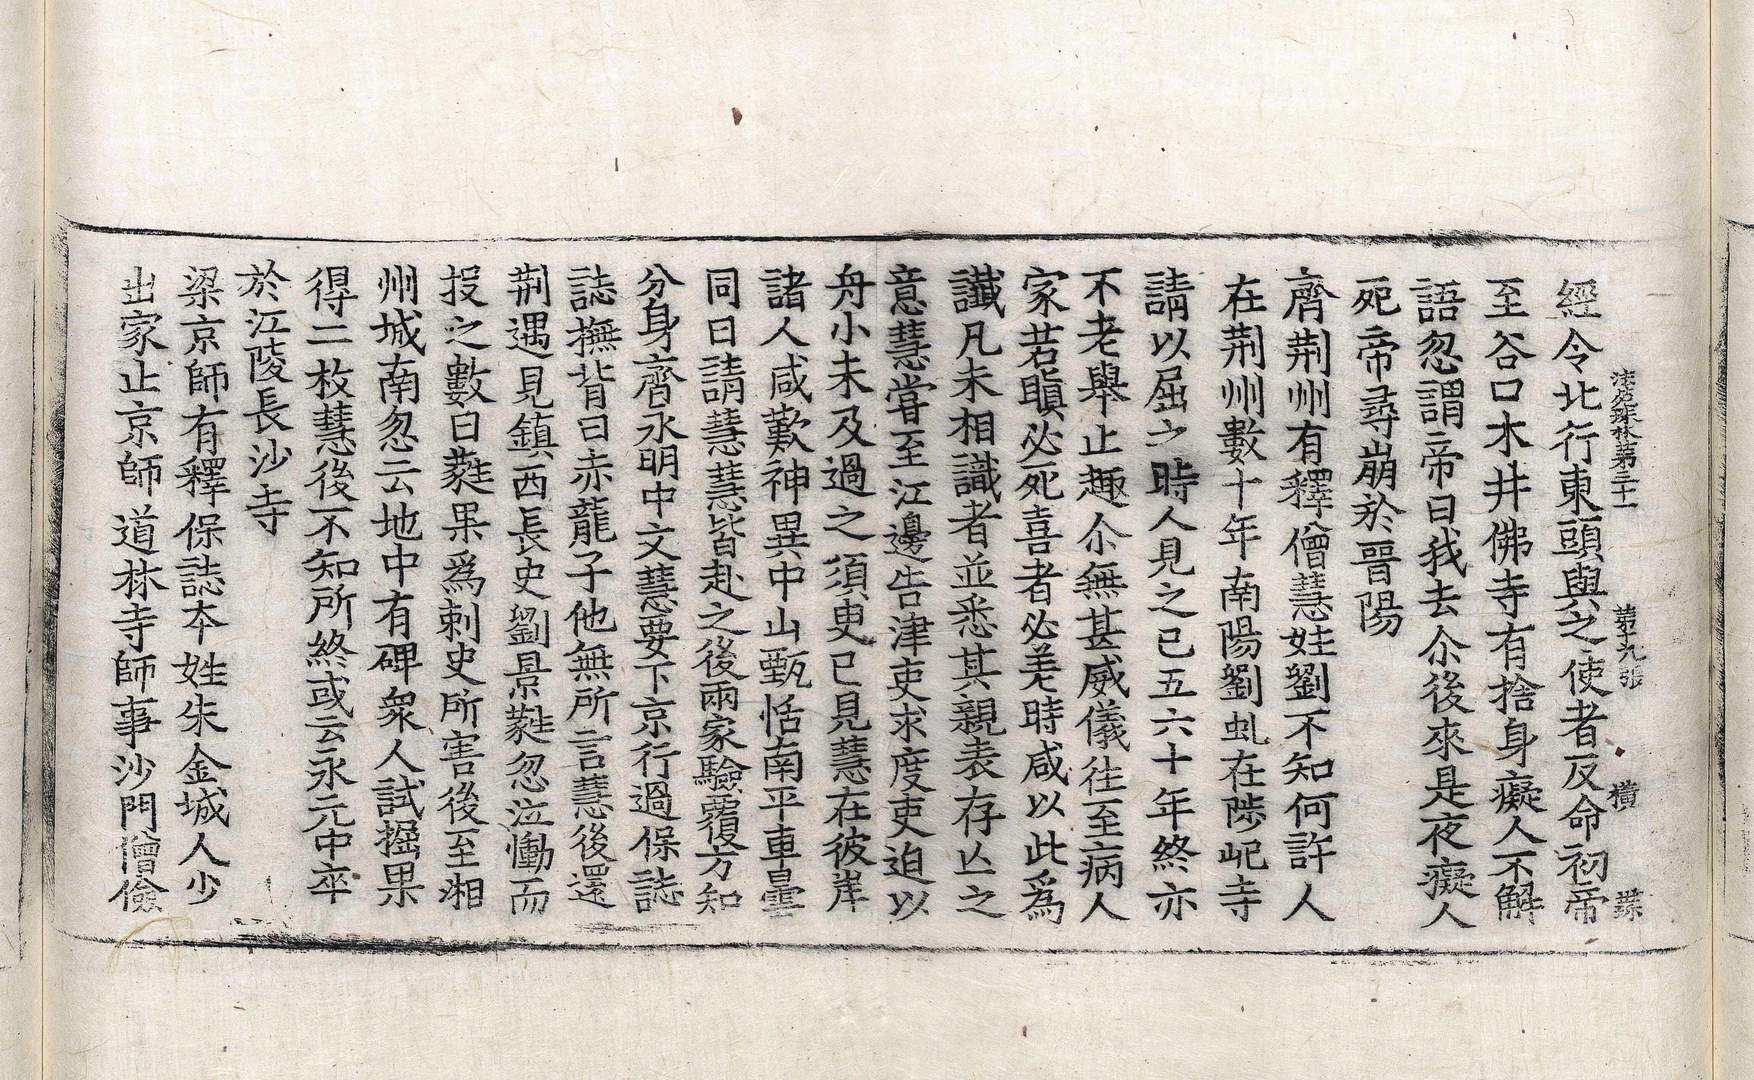 法苑珠林第三十一　第十九張　橫
經令北行東頭與之使者反命初帝
至谷口木井佛寺有捨身癡人不解
語忽謂帝曰我去尒後來是夜癡人
死帝尋崩於晉陽
齊荆州有釋僧慧姓劉不知何許人
在荆州數十年南陽劉虬在陟屺寺
請以屈之時人見之已五六十年終亦
不老舉止趣尒無甚威儀往至病人
家若瞋必死喜者必差時咸以此爲
讖凡未相識者並悉其親表存亾之
意慧嘗至江邊告津吏求度吏迫以
舟小未及過之須臾已見慧在彼岸
諸人咸歎神異中山甄恬南平車曇
同日請慧慧皆赴之後兩家驗覆方知
分身齊永明中文慧要下京行過保誌
誌撫背曰赤龍子他無所言慧後還
荆遇見鎮西長史劉景蕤忽泣慟而
投之數日蕤果爲刺史所害後至湘
州城南忽云地中有碑衆人試掘果
得二枚慧後不知所終或云永元中卒
於江陵長沙寺
梁京師有釋保誌本姓朱金城人少
出家止京師道林寺師事沙門僧儉